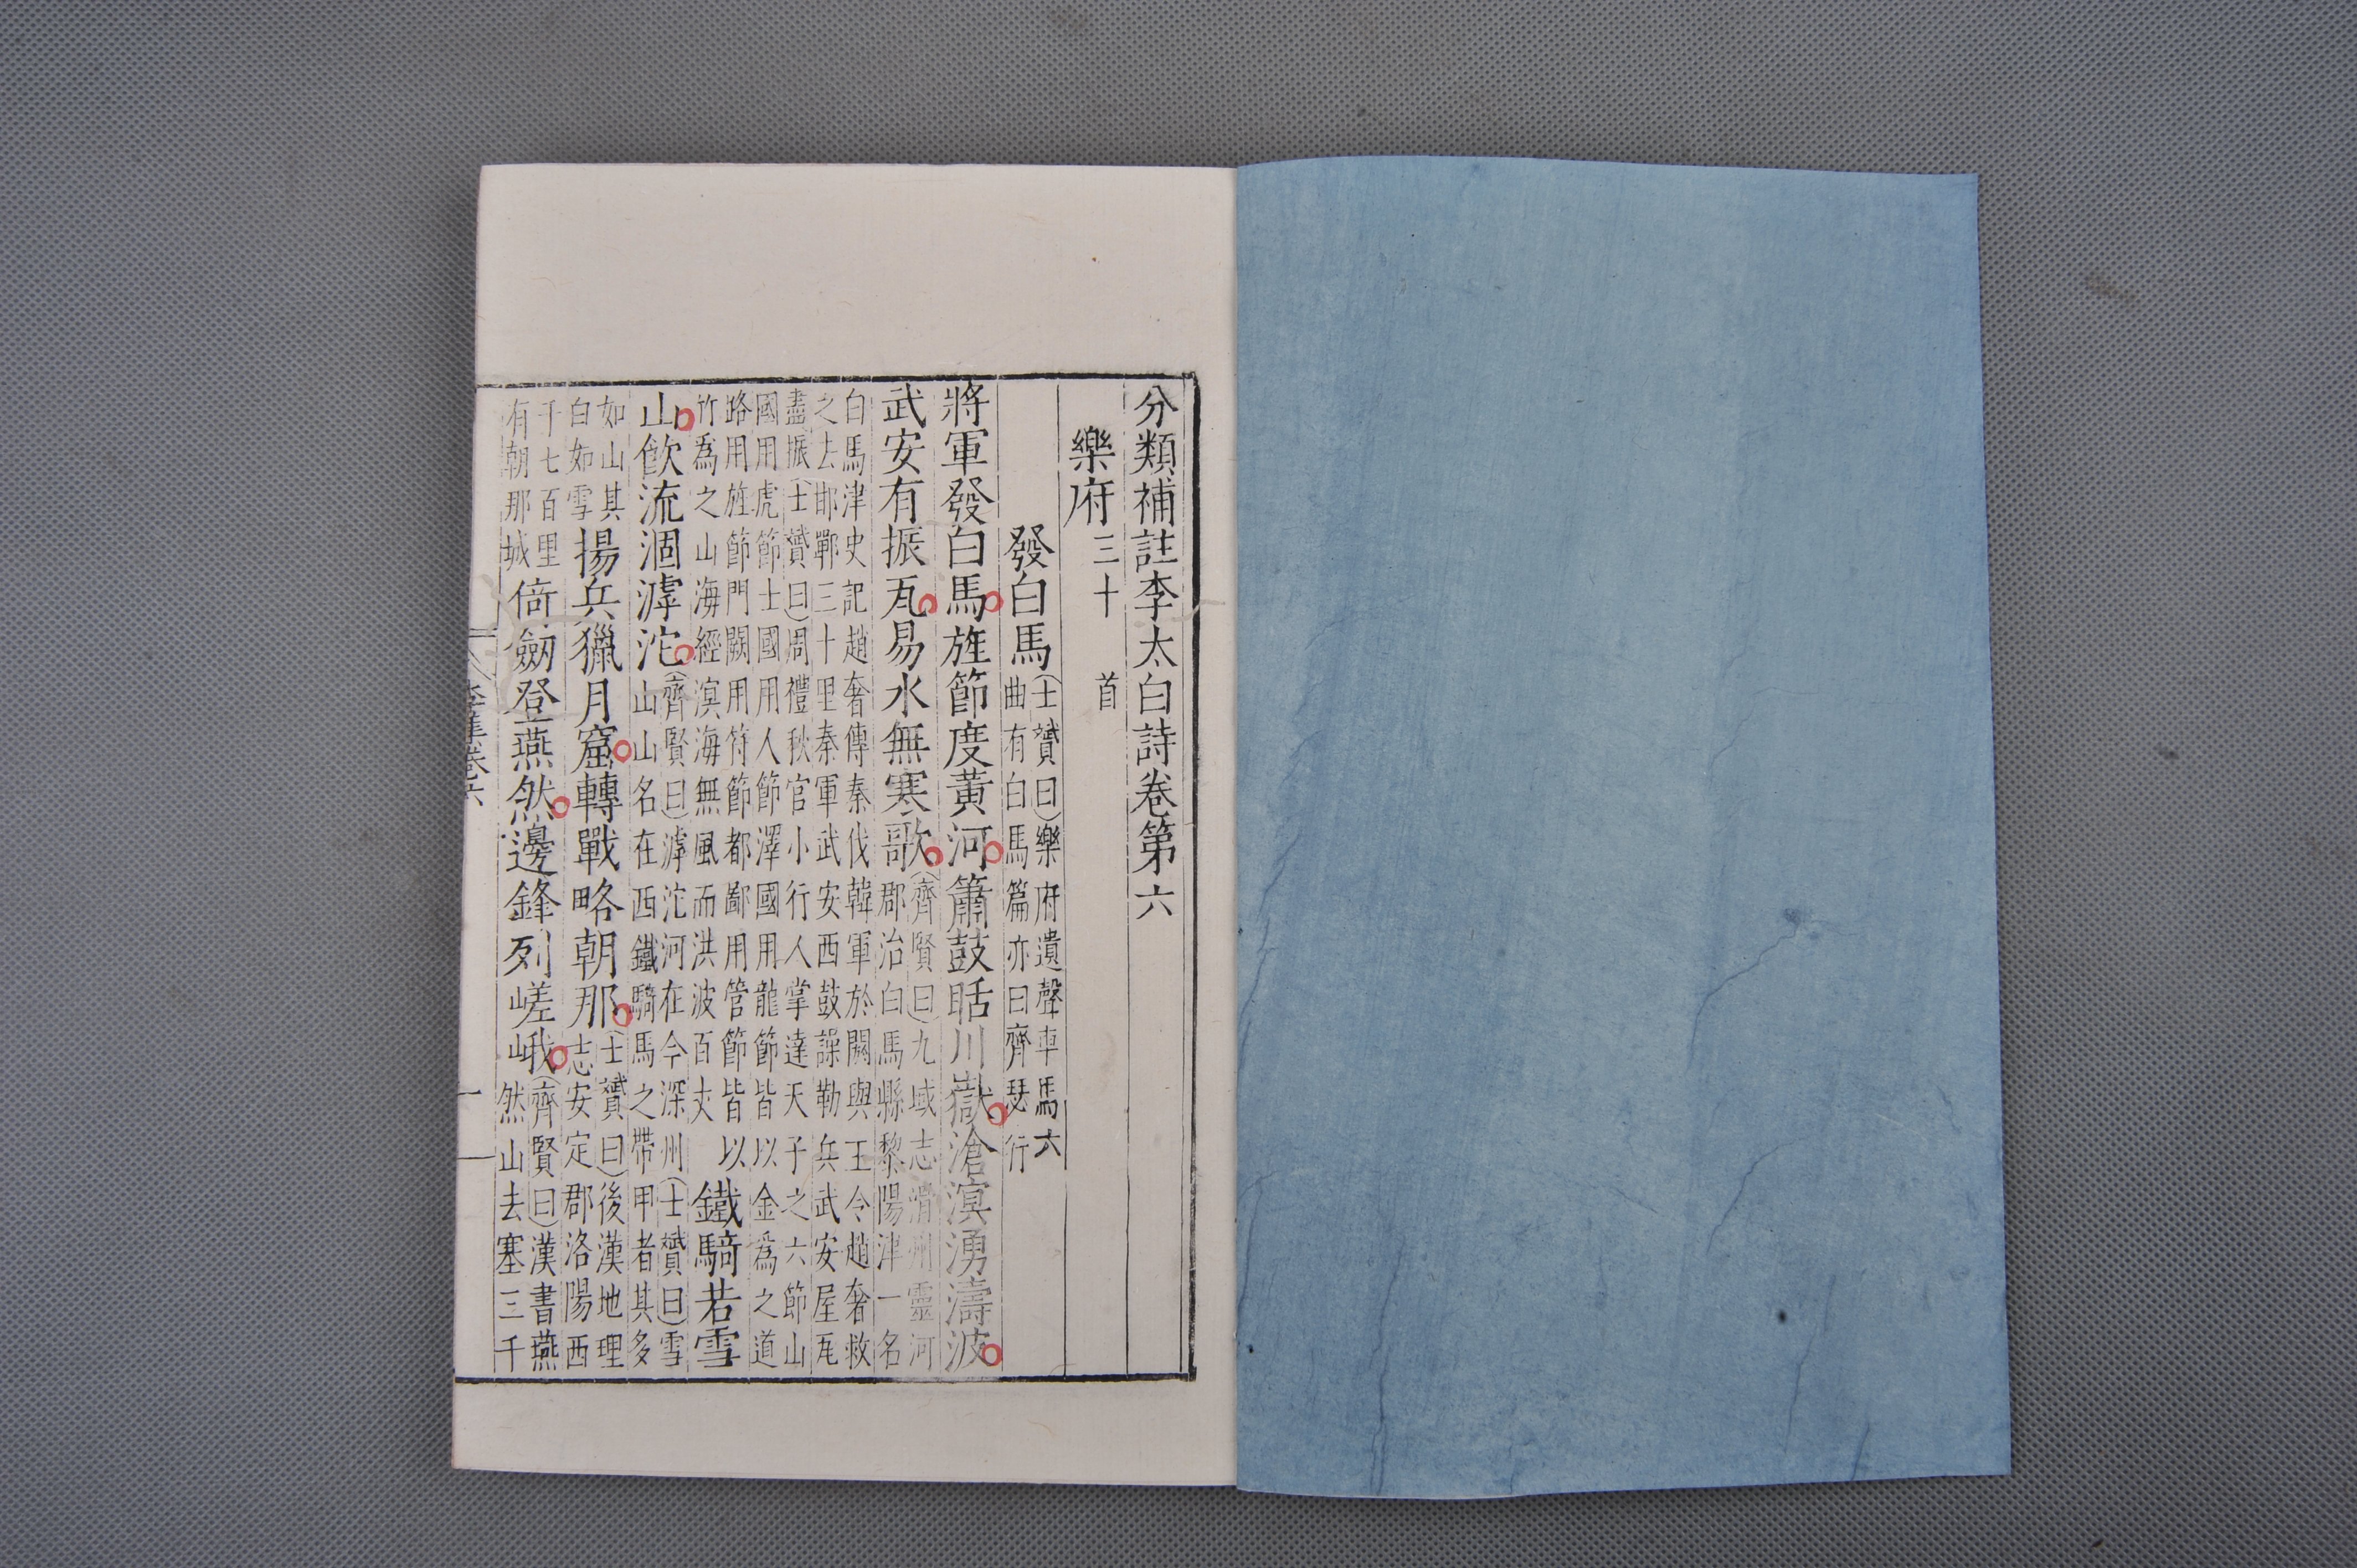 分類補註李太白詩卷第六
樂府三十首
發白馬士贇曰樂府遺聲車馬六
曲有白馬篇亦曰齊瑟行
將軍發白馬旌節度黃河簫鼓聒川嶽滄溟湧濤波
武安有振瓦易水無寒歌齊賢曰九域志滑州靈河
郡治白馬縣黎陽津一名
白馬津史記趙奢傳秦伐韓軍於閼與王令趙奢救
之去邯鄲三十里秦軍武安西鼓譟勒兵武安屋瓦
盡振士贇曰周禮秋官小行人掌達天子之六節山
國用虎節士國用人節澤國用龍節皆以金為之道
路用旌節門關用符節都鄙用管節皆以
竹為之山海經溟海無風而洪波百丈
鐵騎若雪
山飲流涸滹沱齊賢曰滹沱河在今深州士贇曰雪
山山名在西鐵騎馬之帶甲者其多
如山其
白如雪
揚兵獵月窟轉戰略朝那士贇曰後漢地理
志安定郡洛陽西
千七百里
有朝那城
倚劒登燕然邊鋒列嵯峨齊賢曰漢書燕
然山去塞三千
李集卷六
一